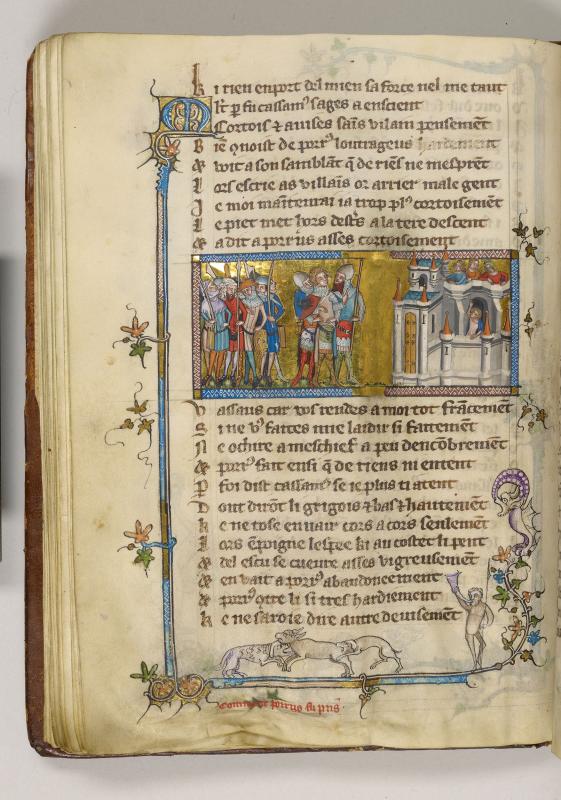 ki rien enport del mien sa force nel me taut
Mlt p fu cassam⁹ sages a ensient
Cortois ⁊ auises sãs vilain pensemẽt
B iẽ ꝯnoist de porr⁹ loutrageus hardement
⁊ voit a son samblãt q̃ de riẽs ne mesprẽt
l ors escrie as villaĩs or arrier male gent
l e moi maĩtenrai ia trop pl⁹ cortoisemẽt
l e piet met hors destĩs a la tere descent
⁊ a dit a porr⁹ asses cortoisement
V assaus car vos rendes a moi tot frãcement
S i ne vo⁹ faites mie laidir si faitement
N e ochire a meschief a peu dencõbremẽt
⁊ porr⁹ fait ensi q̃ de riens ni entent
P foi dist cassam⁹ se ie plus ti atent
D ont dirõt li grigois ⁊ bas ⁊ hautemẽt
k e ne tose enuair cors a cors seulemẽt
l ors ẽpoigne lespee ki au costet li pent
⁊ del escu se cueure asses vigreusement
⁊ en vait a porr⁹ abandoneement
⁊ porr⁹ ꝯtre li si tres hardiement
k e ne saroie dire autre deuisement
Comment porrus fu pris